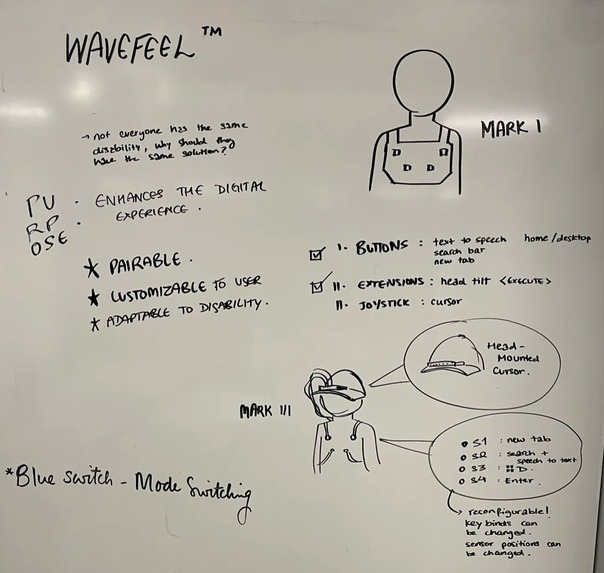 WAVEFEEL™
→ not everyone has the same
disability, why should they
have the same solution?
PU
RP
OSE
· ENHANCES THE DIGITAL
EXPERIENCE.
★ PAIRABLE.
★ CUSTOMIZABLE TO USER
★ ADAPTABLE TO DISABILITY.
MARK I
☑ I. BUTTONS : text to speech home/desktop
search bar
new tab
☑ II. EXTENSIONS : head tilt <EXECUTE>
II. JOYSTICK : cursor
MARK III
Head-
Mounted
Cursor.
S1 : new tab
S2 : search +
speech to text
S3 : D.
S4 : Enter.
→ reconfigurable!
Key binds can
be changed.
sensor positions can
be changed.
*Blue switch - Mode Switching